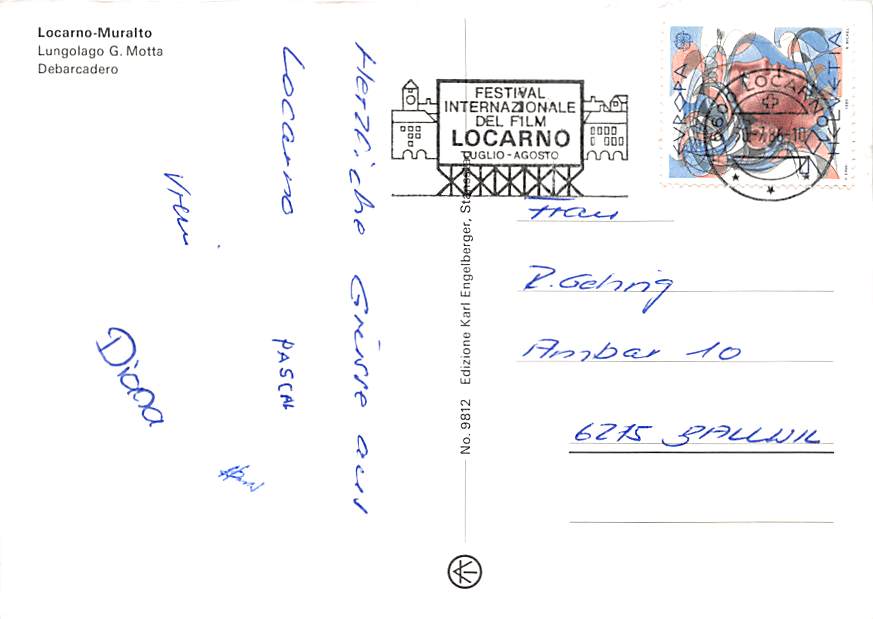 Locarno-Muralto
Lungolago G. Motta
Debarcadero
Herzliche Grüsse aus
Locarno
Vreni
PASCAL
Diana
No. 9812 Edizione Karl Engelberger, Stansstad
FESTIVAL
INTERNAZIONALE
DEL FILM
LOCARNO
LUGLIO-AGOSTO
EUROPA
HELVETIA
6600 LOCARNO
Frau
R. Gehrig
Ambar 10
6275 BALLWIL